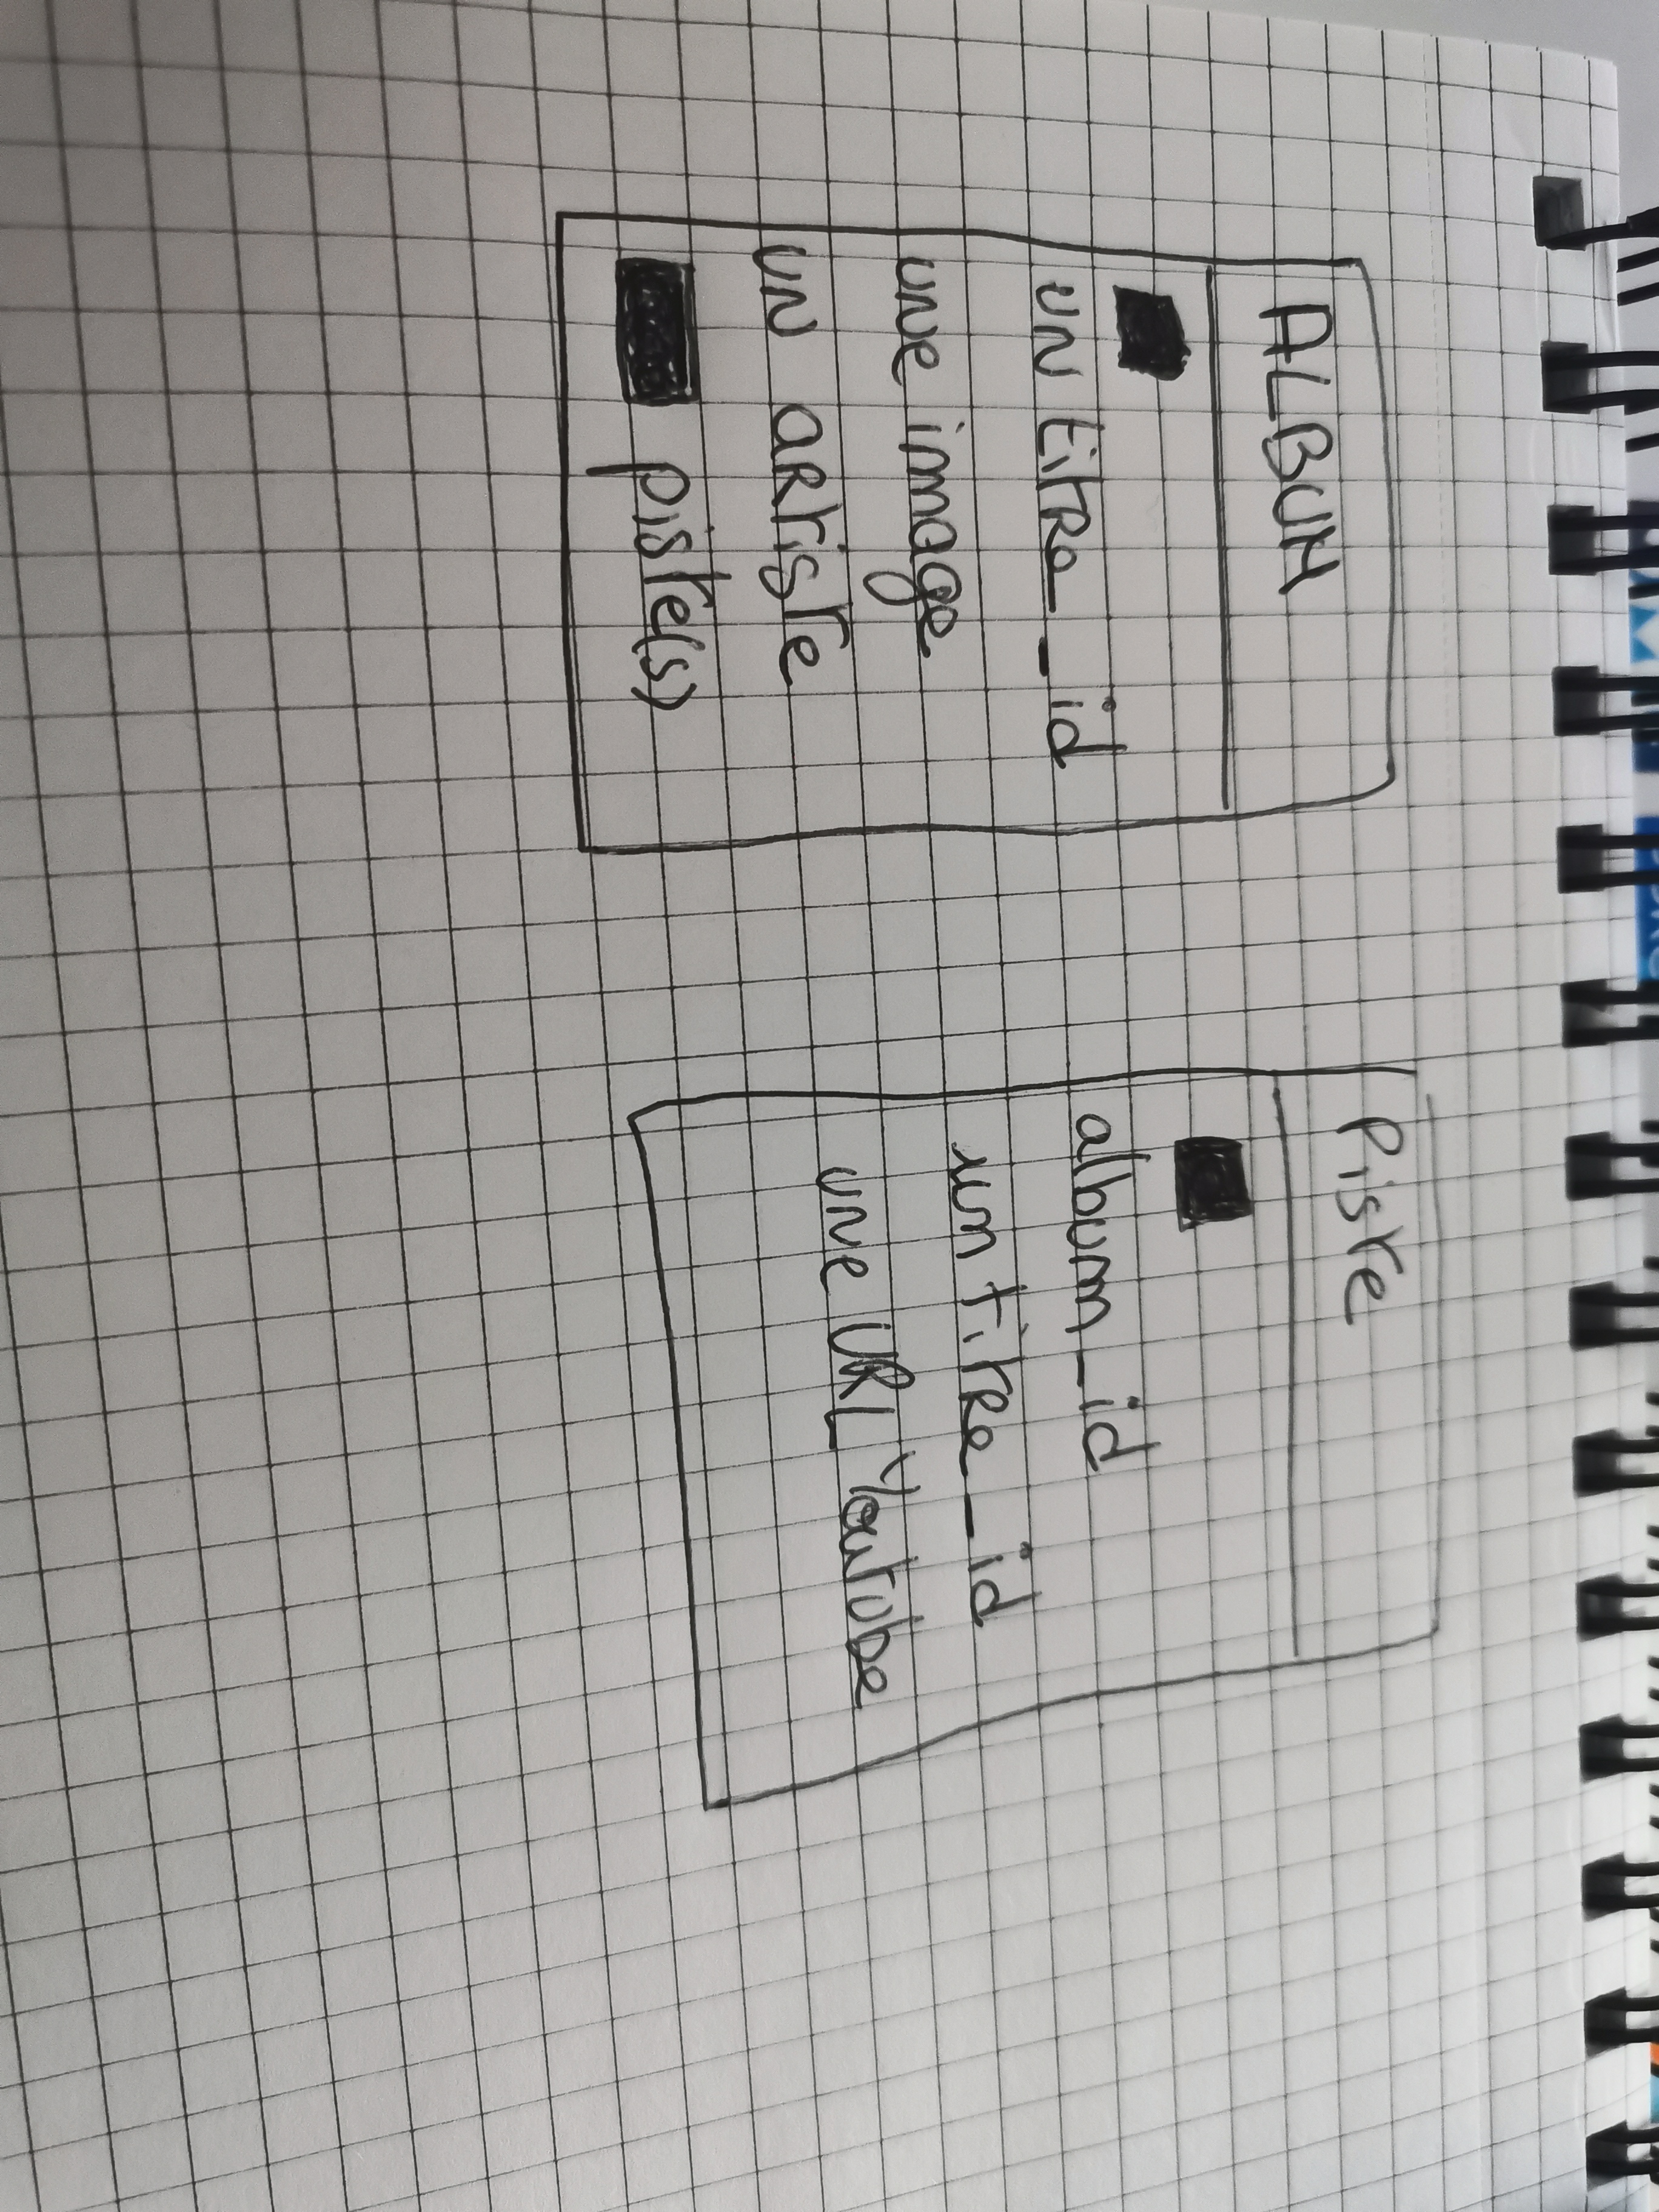 ALBUM
un titre_id
une image
un artiste
piste(s)
Piste
album_id
un titre_id
une URL Youtube